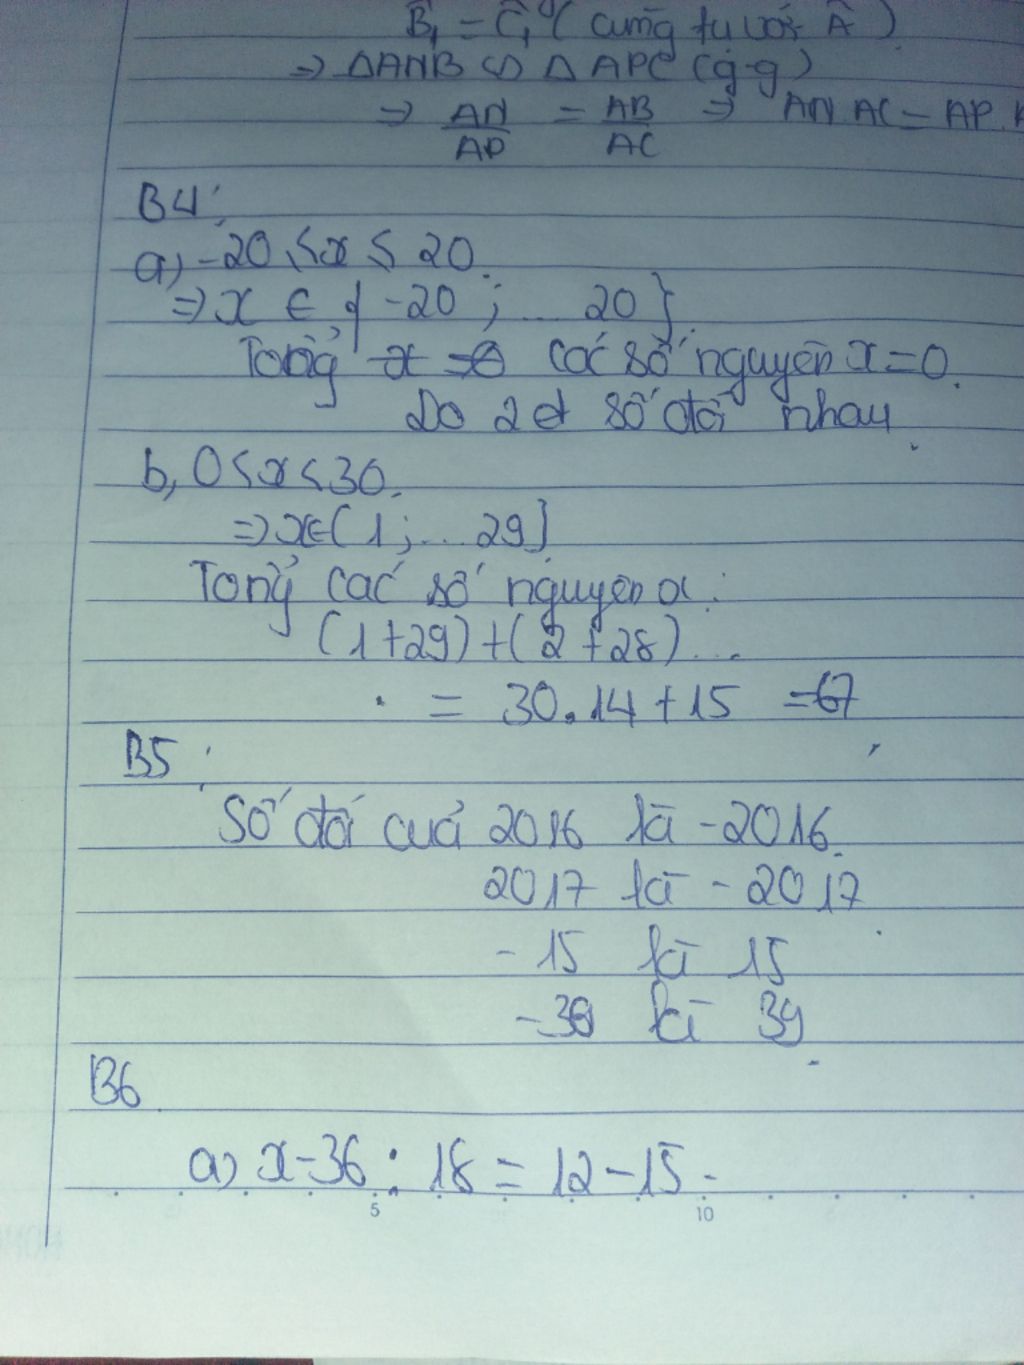 B̂₁ = Ĉ₁ (cùng phụ với Â)
⇒ ΔANB ∽ ΔAPC (g-g)
⇒ AN/AP = AB/AC ⇒ AN AC = AP.
B4:
a) -20 ≤ x ≤ 20.
⇒ x ∈ { -20 ; ... 20 }
Tổng các số nguyên x = 0.
Do 2 số đối nhau.
b, 0 < x < 30.
⇒ x ∈ { 1 ; ... 29 }
Tổng các số nguyên x :
(1 + 29) + (2 + 28) ...
= 30.14 + 15 = 67
B5 :
Số đối của 2016 là -2016.
2017 là - 2017
- 15 là 15
-39 là 39
B6
a) x - 36 : 18 = 12 - 15 -
5 10